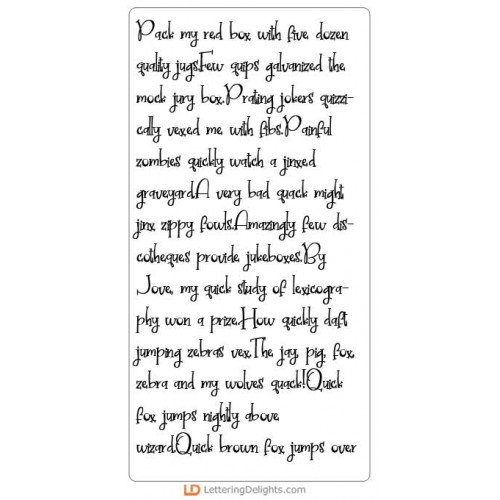 Pack my red box with five dozen
quality jugs.Few quips galvanized the
mock jury box.Prating jokers quizzi-
cally vexed me with fibs.Painful
zombies quickly watch a jinxed
graveyard.A very bad quack might
jinx zippy fowls.Amazingly few dis-
cotheques provide jukeboxes.By
Jove, my quick study of lexicogra-
phy won a prize.How quickly daft
jumping zebras vex.The jay, pig, fox,
zebra and my wolves quack!Quick
fox jumps nightly above
wizard.Quick brown fox jumps over
LD LetteringDelights.com